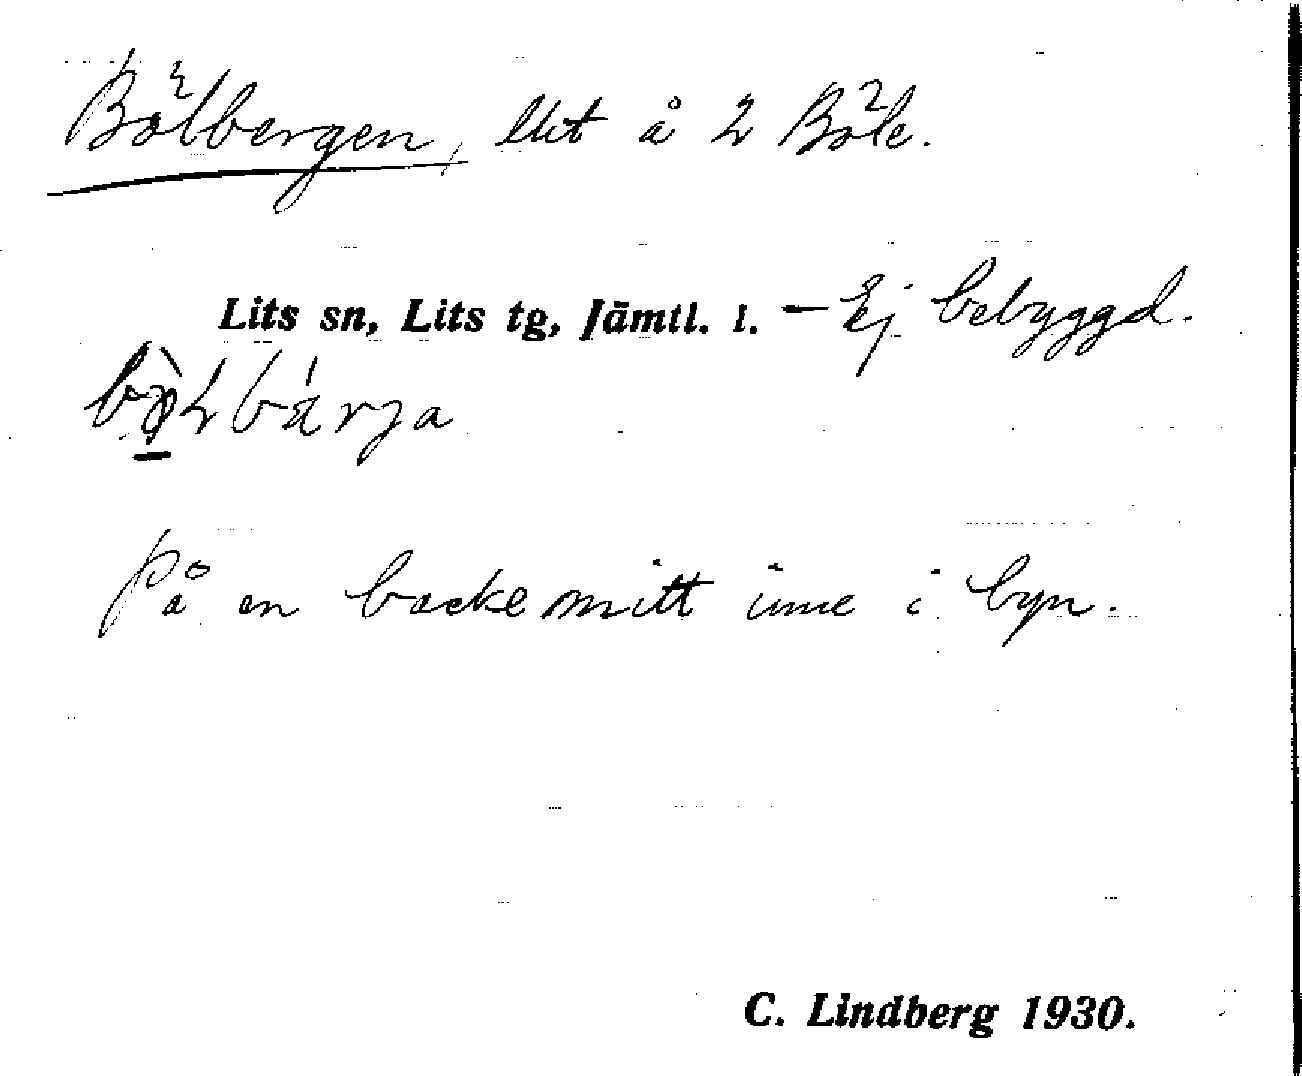 Bölbergen, lht å 2 Böle.
Lits sn, Lits tg, Jämtl. l. – Ej bebyggd.
På en backe mitt inne i byn.
C. Lindberg 1930.